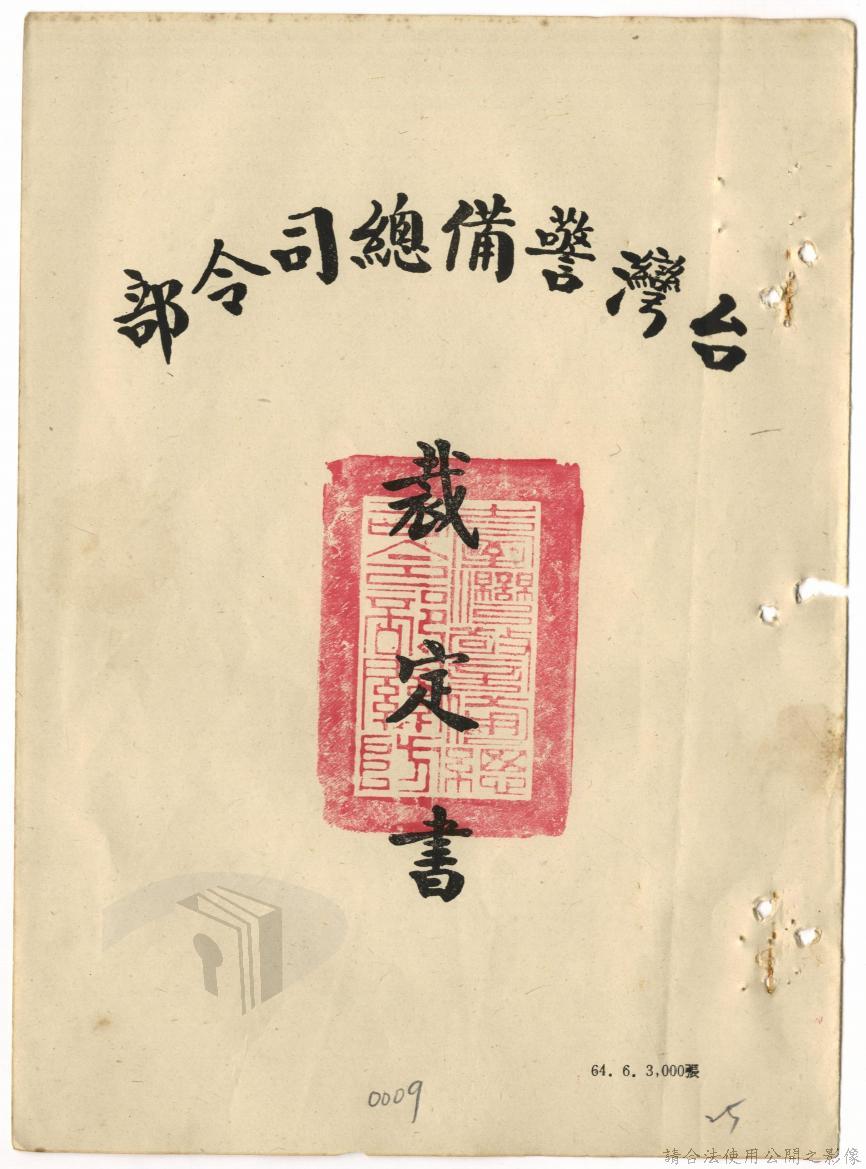 台灣警備總司令部
裁定書
臺灣警備總
司令部關防
64. 6. 3,000張
0009
25
請合法使用公開之影像